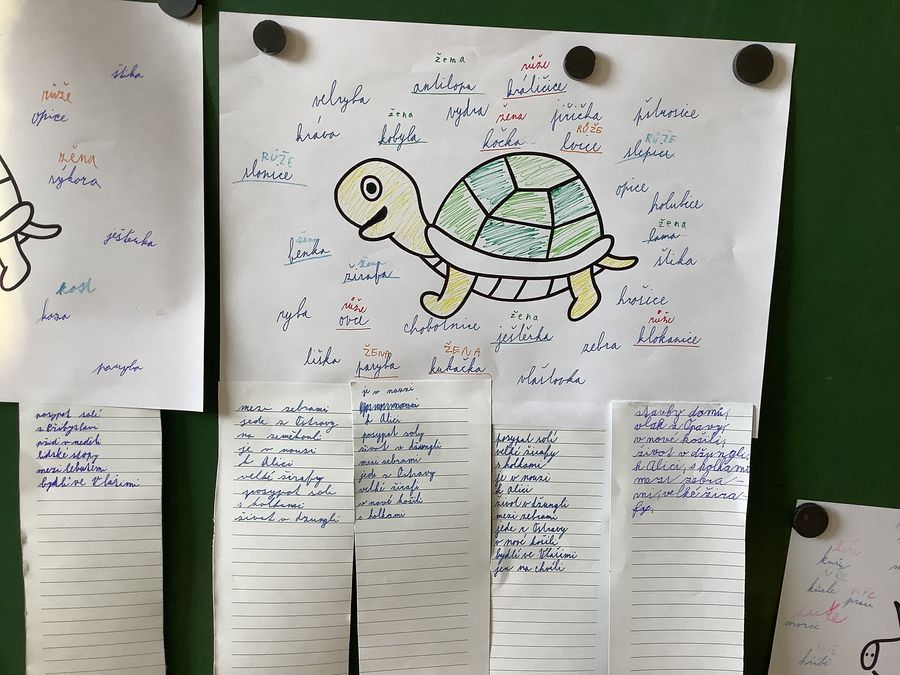 štika
růže
opice
žena
sýkora
ještěrka
kost
koza
paryba
žena
antilopa
růže
králičice
velryba
vydra
žena
kobyla
kráva
žena
kočka
jiřička
RŮŽE
lvice
pštrosice
RŮŽE
slepice
RŮŽE
slonice
opice
holubice
žena
lama
štika
žena
fenka
žena
žirafa
hrošice
ryba
růže
ovce
chobotnice
žena
ještěrka
zebra
růže
klokanice
liška
ŽENA
paryba
ŽENA
kukačka
vlaštovka
posypat solí
z Bratislavy
lidské stopy
bydlí ve Vlašimi
mezi zebrami
jede z Ostravy
je v nouzi
k Alici
velké žirafy
posypat solí
s holkami
život v džungli
je v nouzi
k Alici
posypat soly
život v džungli
mezi zebrami
jede z Ostravy
velké žirafi
v nové košili
s holkami
posypat solí
velké žirafy
s holkami
je v nouzi
k Alici
život v džungli
mezi zebrami
jede z Ostravy
v nové košili
bydlí ve Vlašimi
jen na chvíli
stavby domů,
vlak z Opavy,
v nové košili,
život v džungli,
k Alici, s holkami
mezi zebra-
mi, velké žira-
fy.
morče